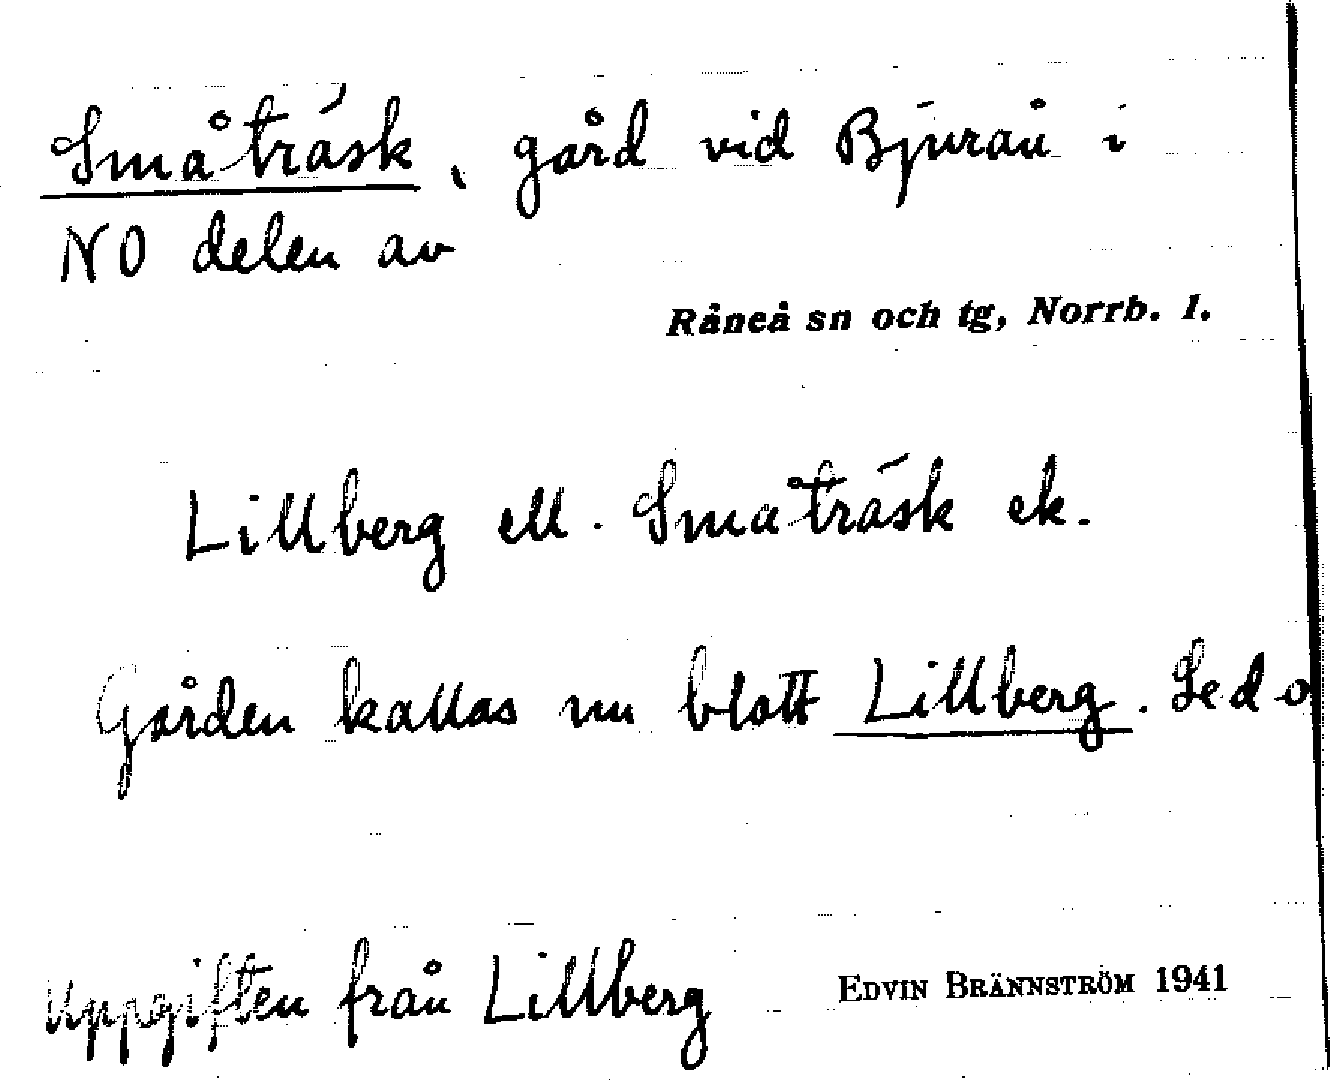 Småträsk, gård vid Bjuraå i
NO delen av
Råneå sn och tg, Norrb. l.
Lillberg ell. Småträsk ek.
Gården kallas nu blott Lillberg. Se d o
Uppgiften från Lillberg
EDVIN BRÄNNSTRÖM 1941